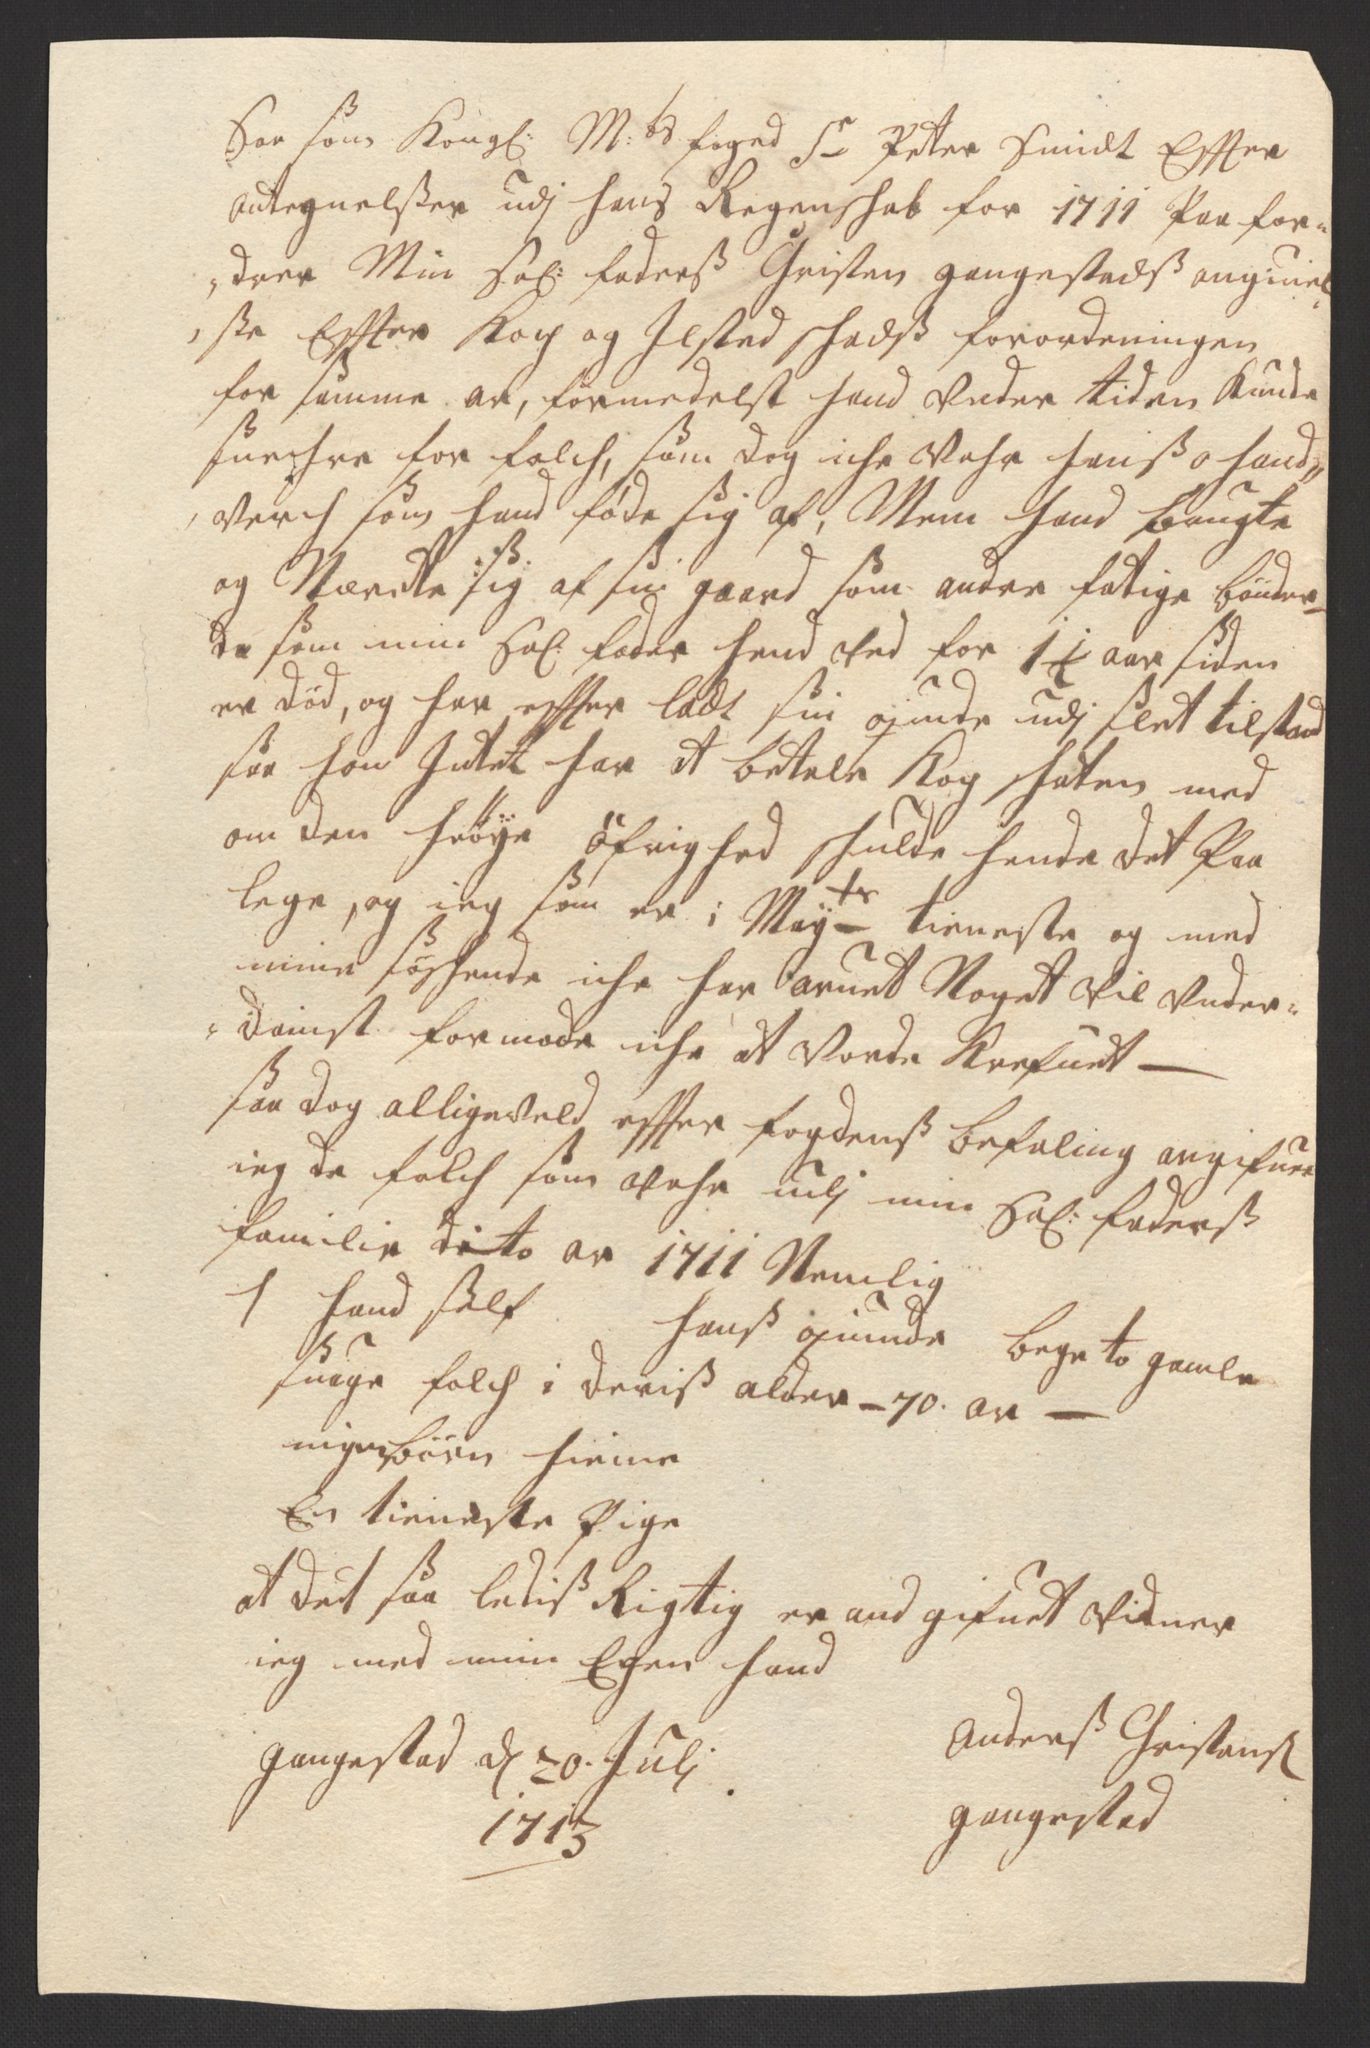 Saa som Kongl: M:ts foged Sr Peter Smidt Effter
antegnelsser udj hans Regenschab for 1711 Paa for-
drer Min Sal: faderß Christen gangestadß angiuel-
ße Effter Kop og Ilsted schadß forordeningen
for samme ar, formedelst hand Vnder tiden Kunde
for folch, som dog iche Vahr hanß hand-
verch som hand føde sig af, Men hand brugte
og Nærdte sig af sin gaard som andre fatige bønder
da som min Sal: fader hend ved for 1½ aar siden
er død, og har effter ladt sin qvinde udj slet tilstand
saa hon Intet har at betale Kop schaten med
om den høye øfrighed schulde hende det Paa
lege, og ieg som er i Mayts tieneste og med
mine søschende iche har aruet Noget vil Vnder-
danist formode iche at Vorde Krefuet —
saa dog alligeveld effter fogdenß befaling angifuer
ieg de folch som vahr udj min Sal: faderß
familie dito ar 1711 Nemlig
1 hand self hanß qvinde bege to gamle
suage folch i deriß alder – 70. ar —
ingen børn hieme
En tieneste Pige
at det saa ledis Rigtig er and gifuet Vidner
ieg med min Egen hand
gangestad d 20. Julj
1713
Anderß Christensß
gangestad